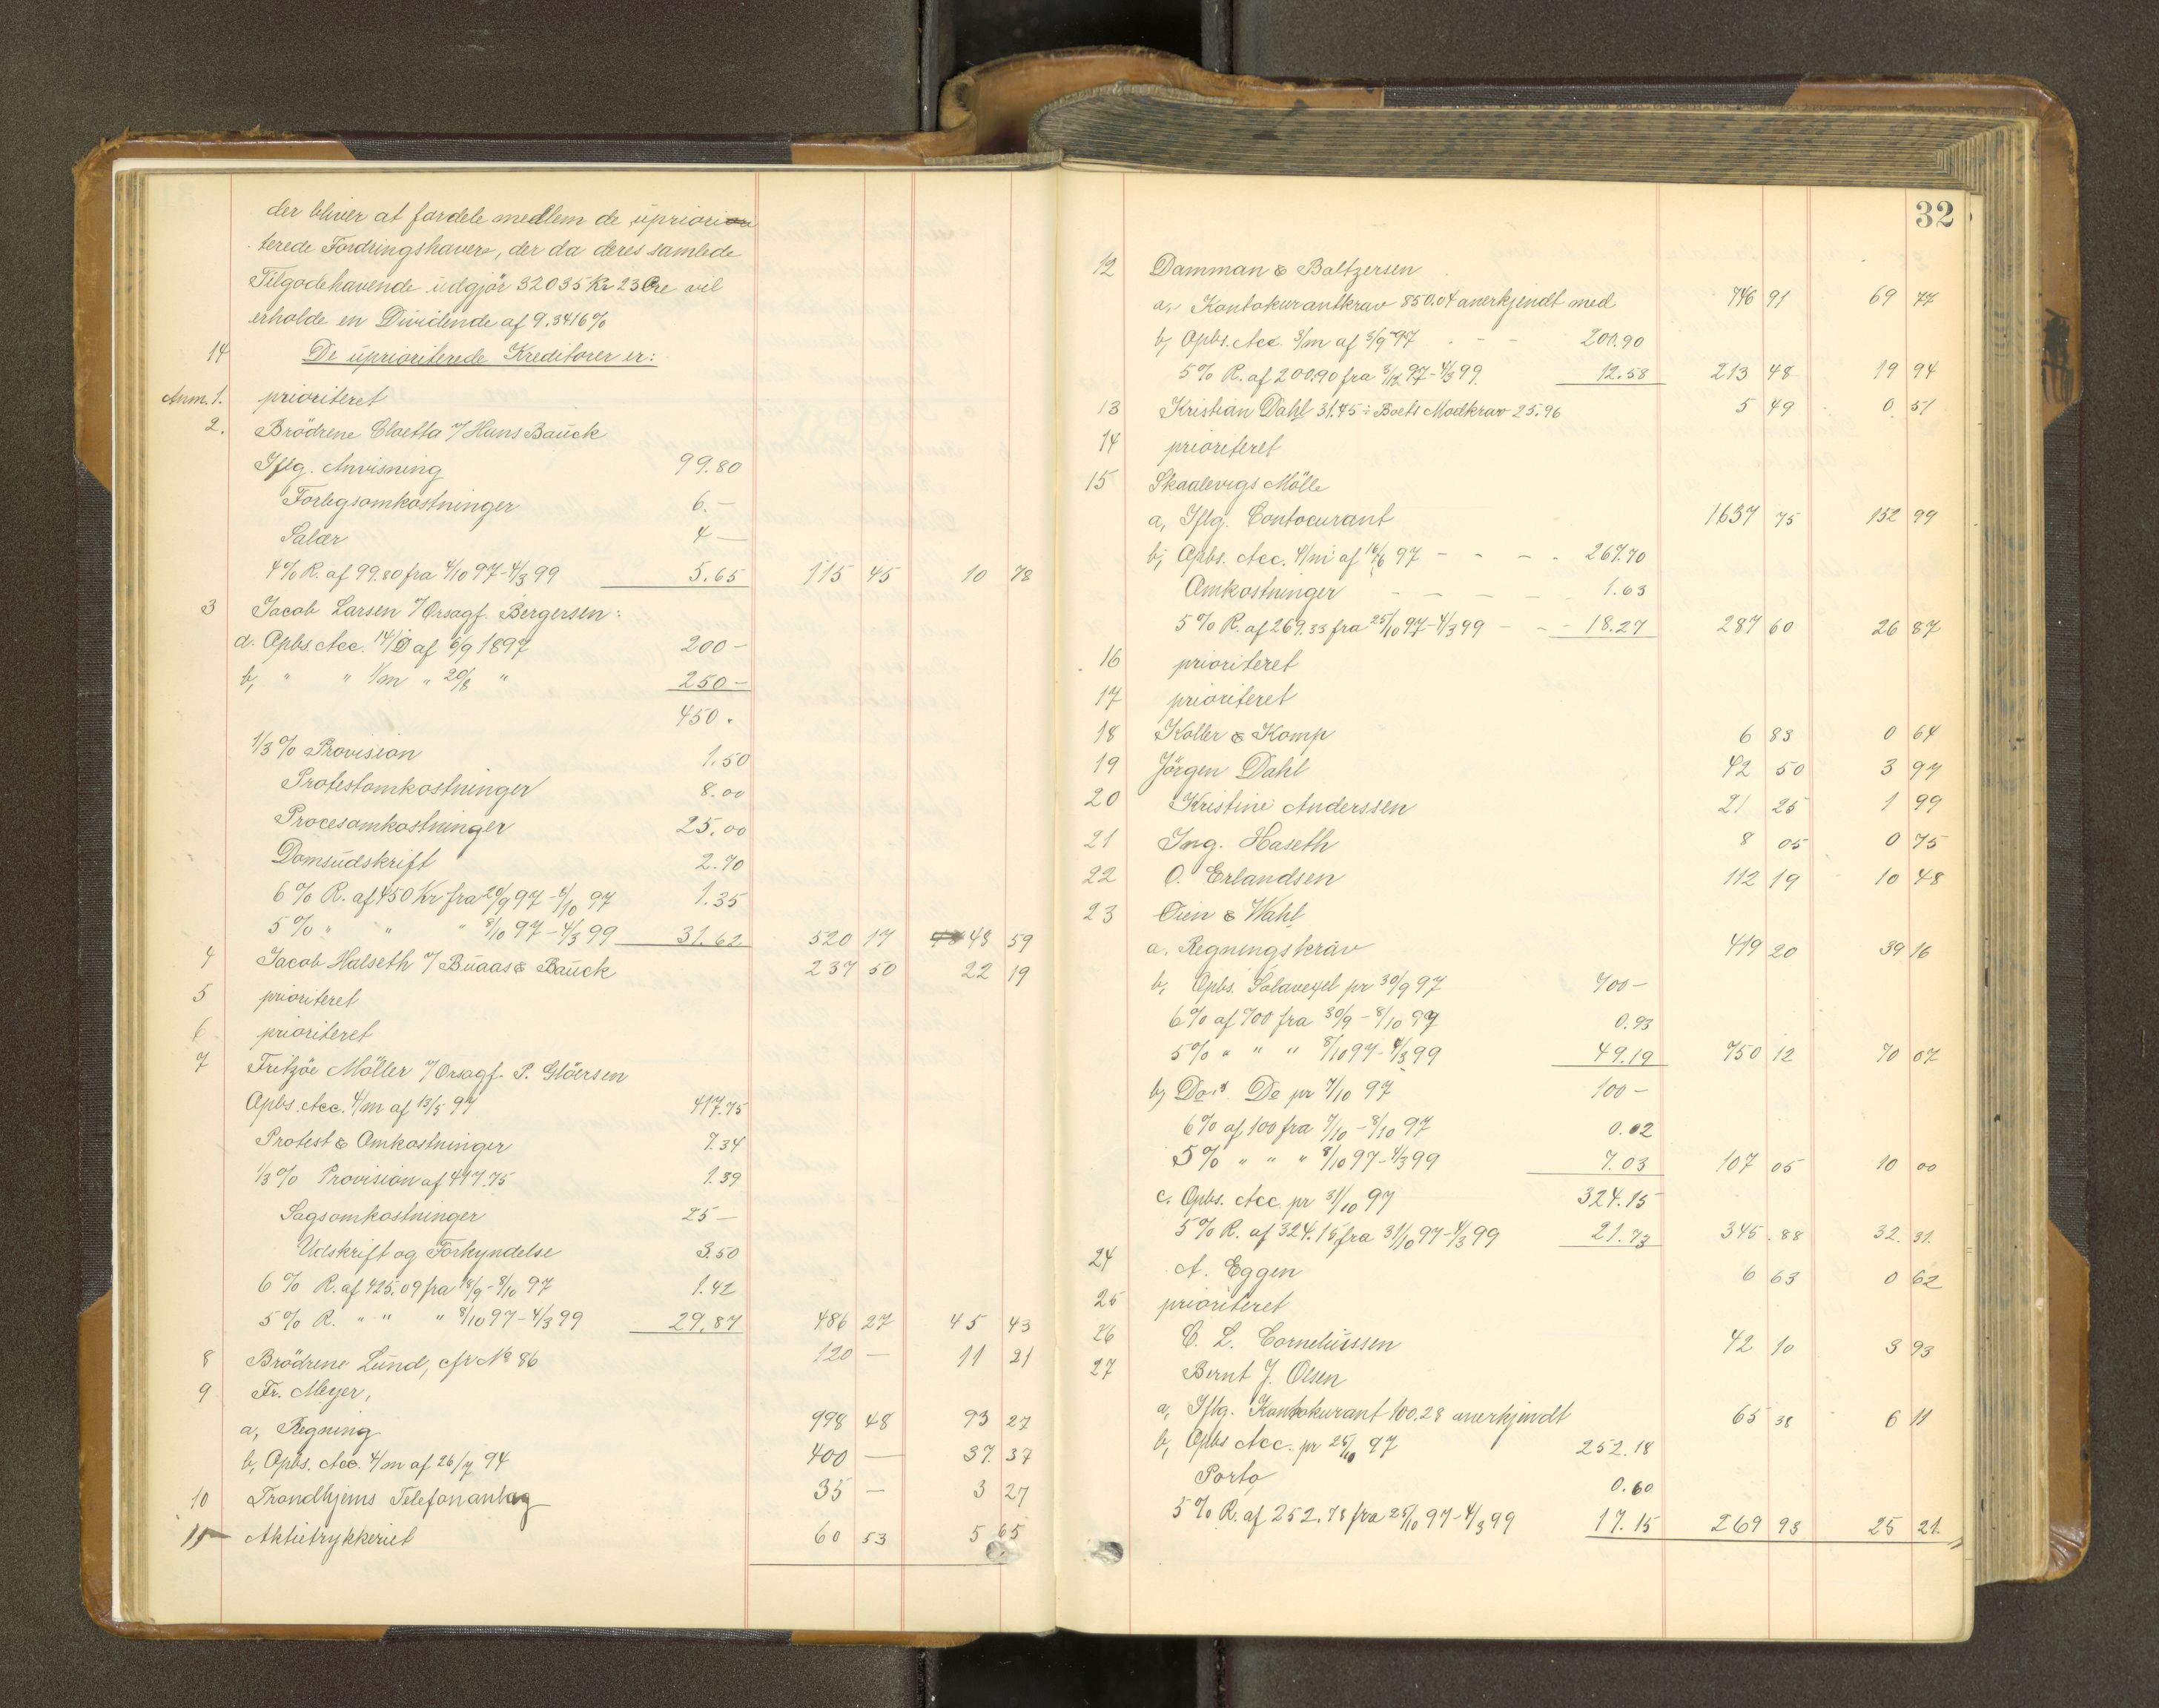 der bliver at fordele mellem de upriori
terede Fordringshavere, der da deres samlede
Tilgodehavende udgjör 32035 Kr 23 Öre vil
erholde en Dividende af 9.3416%
14 De uprioriterede Kreditorer er:
Anm. 1. prioriteret
2. Brödrene Cloetta v/ Hans Bauck
Iflg. Anvisning 99.80
Forlegsomkostninger 6.—
Salær 4 —
4% R. af 99.80 fra 4/10 97 - 4/3 99 5.65 115 45 10 78
3 Jacob Larsen v/ Orsagf. Bergersen:
a. Opbs. Acc. 14/D af 6/9 1897 200 —
b, " " 1/m " 20/8 " 250 —
450.
1/3 % Provision 1.50
Protestomkostninger 8.00
Procesomkostninger 25.00
Domsudskrift 2.70
6% R. af 450 Kr fra 20/9 97 - 8/10 97 1.35
5% " " " 8/10 97 - 4/3 99 31.62 520 17 48 59
4 Jacob Halseth v/ Buaas & Bauck 237 50 22 19
5 prioriteret
6 prioriteret
7 Fritzöe Möller v/ Orsagf. P. Glöersen
Opbs. Acc. 4/m af 13/5 97 417.75
Protest & Omkostninger 7.34
1/3 % Provision af 417.75 1.39
Sagsomkostninger 25 —
Udskrift og Forkyndelse 3.50
6% R. af 425.09 fra 18/9 - 8/10 97 1.42
5% R. " " " 8/10 97 - 4/3 99 29.87 486 27 45 43
8 Brödrene Lund, cfr No 86 120 — 11 21
9 Fr. Meyer,
a, Regning 998 48 93 27
b, Opbs. Acc. 4/m af 26/7 97 400 — 37. 37
10 Trondhjems Telefonanlæg 35 — 3 27
11 Aktietrykkeriet 60 53 5 65
32
12 Damman & Baltzersen
a, Kontokurantkrav 850.04 anerkjendt med 746 91 69 77
b, Opbs. Acc. 3/m af 3/9 97 . - - 200.90
5% R. af 200.90 fra 3/12 97 - 4/3 99. 12.58 213 48 19 94
13 Kristian Dahl 31.45 ÷ Boets Modkrav 25.96 5 49 0 51
14 prioriteret
15 Skaalevigs Mölle
a, Iflg. Contocurant 1637 75 152 99
b, Opbs. Acc. 4/m af 16/6 97 - - - - 267.70
Omkostninger - - - - - 1.63
5% R. af 269.33 fra 25/10 97 - 4/3 99 - - - 18.27 287 60 26 87
16 prioriteret
17 prioriteret
18 Koller & Komp 6 83 0 64
19 Jörgen Dahl 42 50 3 97
20 Kristine Anderssen 21 25 1 99
21 Ing. Haseth 8 05 0 75
22 O. Erlandsen 112 19 10 48
23 Öien & Wahl
a. Regningskrav 419 20 39 16
b, Opbs. Solavexel pr 30/9 97 700 —
6% af 700 fra 30/9 - 8/10 97 0.93
5% " " " 8/10 97 - 4/3 99 49.19 750 12 70 07
b, Do De pr 7/10 97 100 —
6% af 100 fra 7/10 - 8/10 97 0.02
5% " " " 8/10 97 - 4/3 99 7.03 107 05 10 00
c. Opbs. Acc. pr 31/10 97 324.15
5% R. af 324.15 fra 31/10 97 - 4/3 99 21.73 345. 88 32. 31.
24 A. Eggen 6 63 0 62
25 prioriteret
26 C. L. Corneliussen 42 10 3 93
27 Bernt J. Olsen
a, Iflg. Kontokurant 100.28 anerkjendt 65 38 6 11
b, Opbs Acc. pr 25/10 97 252.18
Porto 0.60
5% R. af 252.78 fra 25/10 97 - 4/3 99 17.15 269 93 25 21.